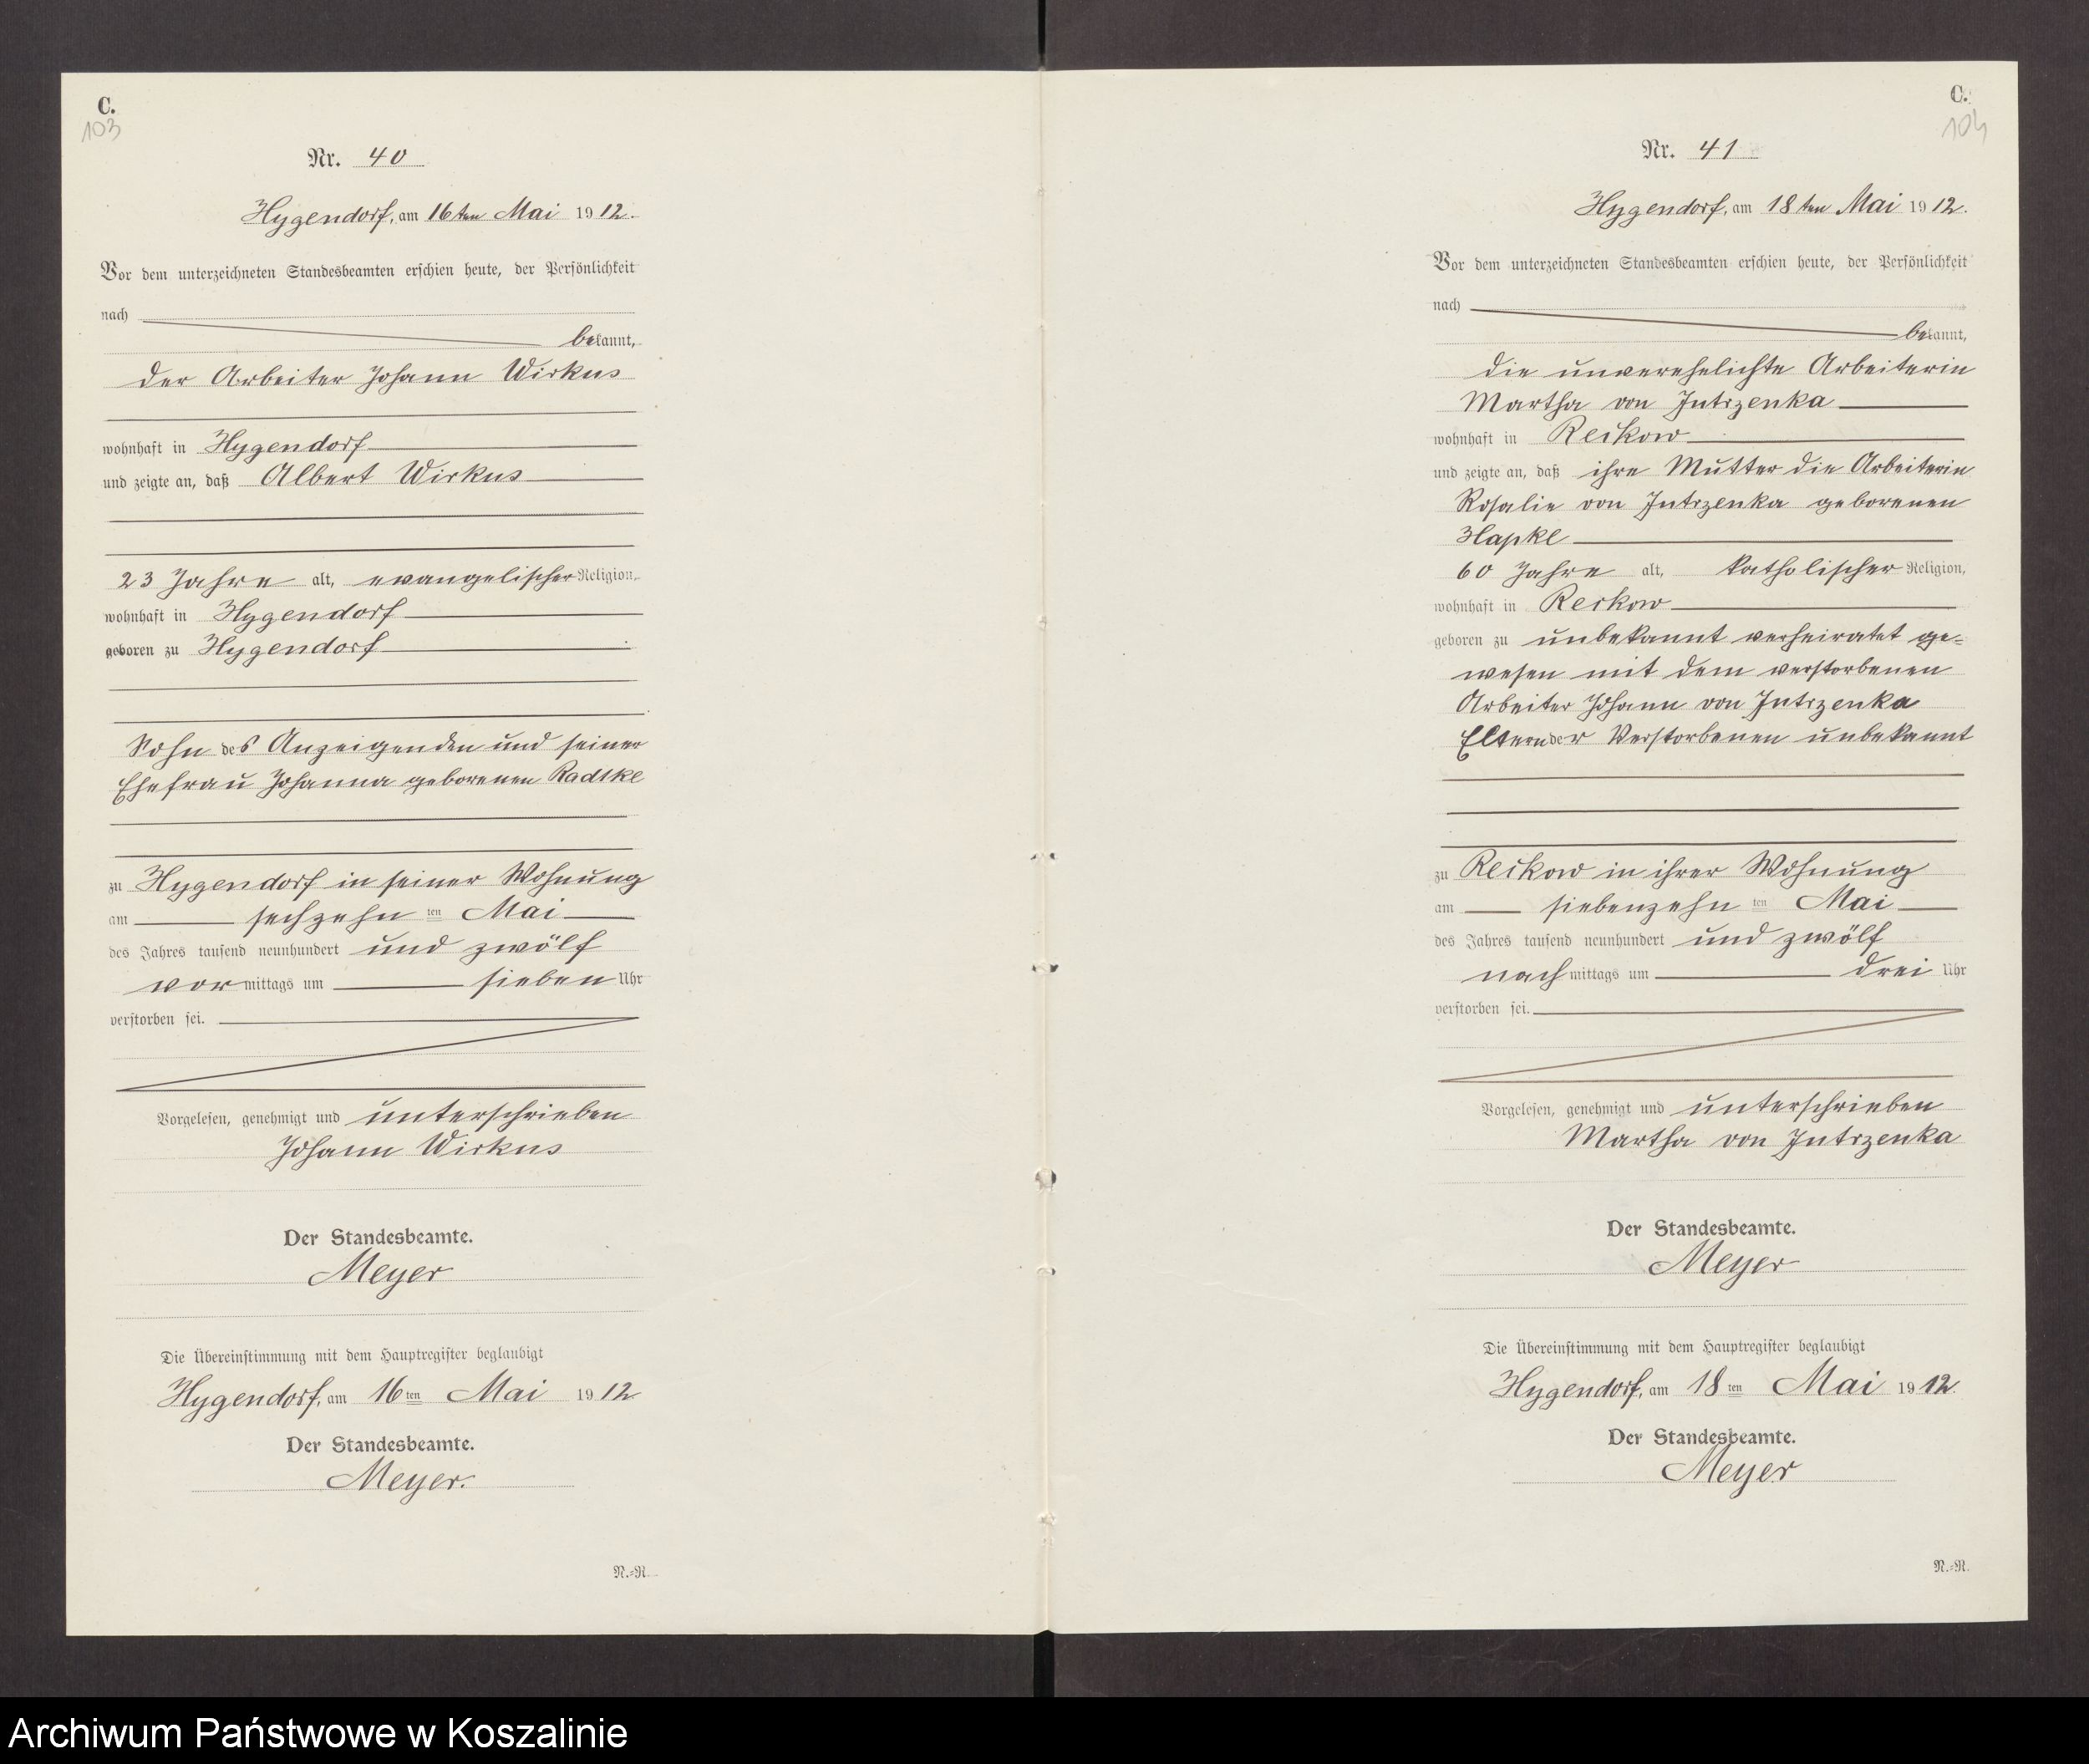 C.
103
Nr. 40
Hygendorf, am 16ten Mai 1912.
Vor dem unterzeichneten Standesbeamten erschien heute, der Persönlichkeit
nach
bekannt,
der Arbeiter Johann Wirkus
wohnhaft in Hygendorf
und zeigte an, daß Albert Wirkus
23 Jahre alt, evangelischer Religion,
wohnhaft in Hygendorf
geboren zu Hygendorf
Sohn des Anzeigenden und seiner
Ehefrau Johanna geborenen Radtke
zu Hygendorf in seiner Wohnung
am sechzehn ten Mai
des Jahres tausend neunhundert und zwölf
vormittags um sieben Uhr
verstorben sei.
Vorgelesen, genehmigt und unterschrieben
Johann Wirkus
Der Standesbeamte.
Meyer
Die Übereinstimmung mit dem Hauptregister beglaubigt
Hygendorf, am 16 ten Mai 1912
Der Standesbeamte.
Meyer.
N.=R.
C.
104
Nr. 41
Hygendorf, am 18ten Mai 1912.
Vor dem unterzeichneten Standesbeamten erschien heute, der Persönlichkeit
nach
bekannt,
die unverehelichte Arbeiterin
Martha von Jutrzenka
wohnhaft in Reckow
und zeigte an, daß ihre Mutter die Arbeiterin
Rosalie von Jutrzenka geborenen
Hapke
60 Jahre alt, katholischer Religion,
wohnhaft in Reckow
geboren zu unbekannt verheiratet ge=
wesen mit dem verstorbenen
Arbeiter Johann von Jutrzenka
Eltern der Verstorbenen unbekannt
zu Reckow in ihrer Wohnung
am siebenzehn ten Mai
des Jahres tausend neunhundert und zwölf
nachmittags um drei Uhr
verstorben sei.
Vorgelesen, genehmigt und unterschrieben
Martha von Jutrzenka
Der Standesbeamte.
Meyer
Die Übereinstimmung mit dem Hauptregister beglaubigt
Hygendorf, am 18 ten Mai 1912.
Der Standesbeamte.
Meyer
N.=R.
Archiwum Państwowe w Koszalinie